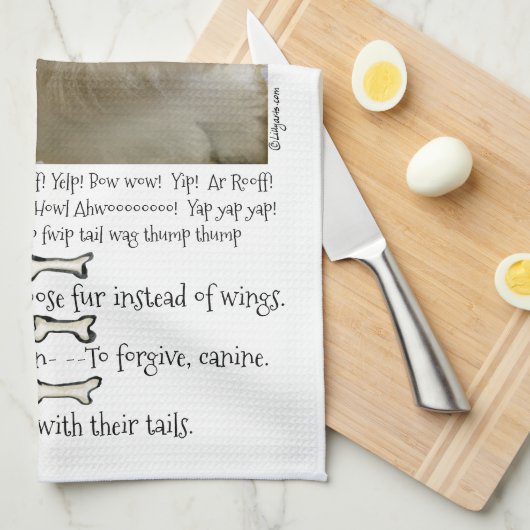 ©Lillyarts.com
Yelp! Bow wow! Yip! Ar Rooff!
Howl Ahwoooooooo! Yap yap yap!
fwip tail wag thump thump
fur instead of wings.
- - -To forgive, canine.
with their tails.